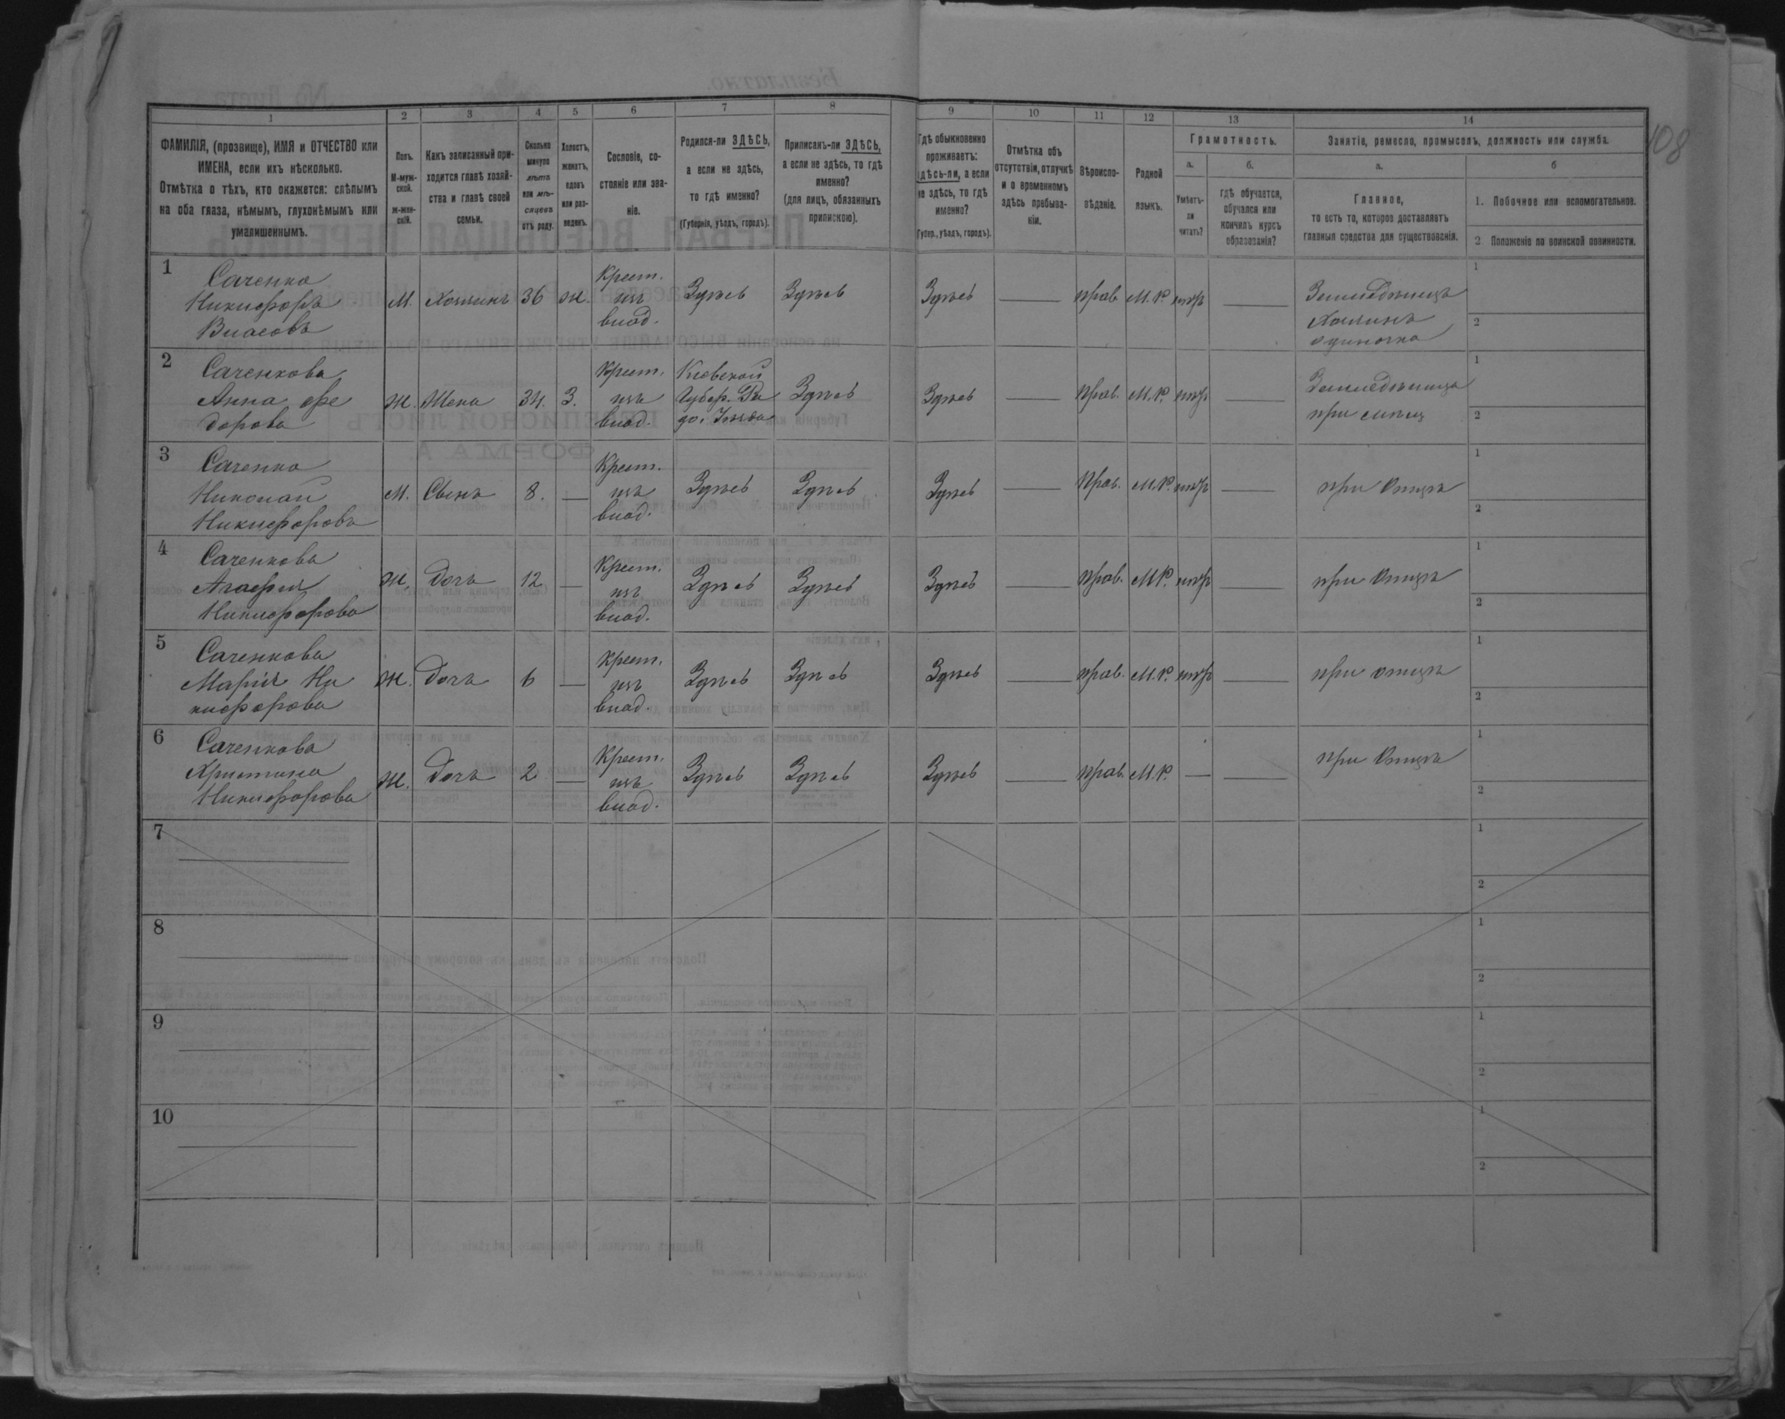 108
1 2 3 4 5 6 7 8 9 10 11 12 13 14
ФАМИЛІЯ, (прозвище), ИМЯ и ОТЧЕСТВО или
ИМЕНА, если ихъ нѣсколько.
Отмѣтка о тѣхъ, кто окажется: слѣпымъ
на оба глаза, нѣмымъ, глухонѣмымъ или
умалишеннымъ.
Полъ.
М-муж-
ской.
ж-жен-
скій.
Какъ записанный при-
ходится главѣ хозяй-
ства и главѣ своей
семьи.
Сколько
минуло
лѣтъ
или мѣ-
сяцевъ
отъ роду.
Холостъ,
женатъ,
вдовъ
или раз-
веденъ.
Сословіе, со-
стояніе или зва-
ніе.
Родился-ли ЗДѢСЬ,
а если не здѣсь,
то гдѣ именно?
(Губернія, уѣздъ, городъ).
Приписанъ-ли ЗДѢСЬ,
а если не здѣсь, то гдѣ
именно?
(для лицъ, обязанныхъ
припискою).
Гдѣ обыкновенно
проживаетъ:
здѣсь-ли, а если
не здѣсь, то гдѣ
именно?
(Губер., уѣздъ, городъ).
Отмѣтка объ
отсутствіи, отлучкѣ
и о временномъ
здѣсь пребыва-
ніи.
Вѣроиспо-
вѣданіе.
Родной
языкъ.
Грамотность.
а.
Умѣетъ-
ли
читать?
б.
гдѣ обучается,
обучался или
кончилъ курсъ
образованія?
Занятіе, ремесло, промыселъ, должность или служба.
а.
Главное,
то есть то, которое доставляетъ
главныя средства для существованія.
б
1. Побочное или вспомогательное.
2 Положеніе по воинской повинности.
1
Саченко
Никифоръ
Власовъ
М. Хозяинъ 36 ж.
Крест.
изъ
влад.
Здѣсь Здѣсь Здѣсь прав. М.Р.
Хозяинъ
одиночка
1
2
2
Саченкова
Анна Фе
дорова
Ж. Жена 34. З.
Крест.
изъ
влад.
Кіевской
Губер.
Здѣсь Здѣсь прав. М.Р.
1
2
3
Саченко
Николай
Никифоровъ
М. Сынъ 8.
Крест.
изъ
влад.
Здѣсь Здѣсь Здѣсь прав. М.Р. при Отцѣ
1
2
4
Саченкова
Агафія
Никифорова
Ж. дочь 12
Крест.
изъ
влад.
Здѣсь Здѣсь Здѣсь прав. М.Р. при Отцѣ
1
2
5
Саченкова
Марія Ни
кифорова
Ж. дочь 6
Крест.
изъ
влад.
Здѣсь Здѣсь Здѣсь прав. М.Р. при отцѣ
1
2
6
Саченкова
Христина
Никифорова
Ж. дочь 2
Крест.
изъ
влад.
Здѣсь Здѣсь Здѣсь прав. М.Р. при Отцѣ
1
2
7
1
2
8
1
2
9
1
2
10
1
2